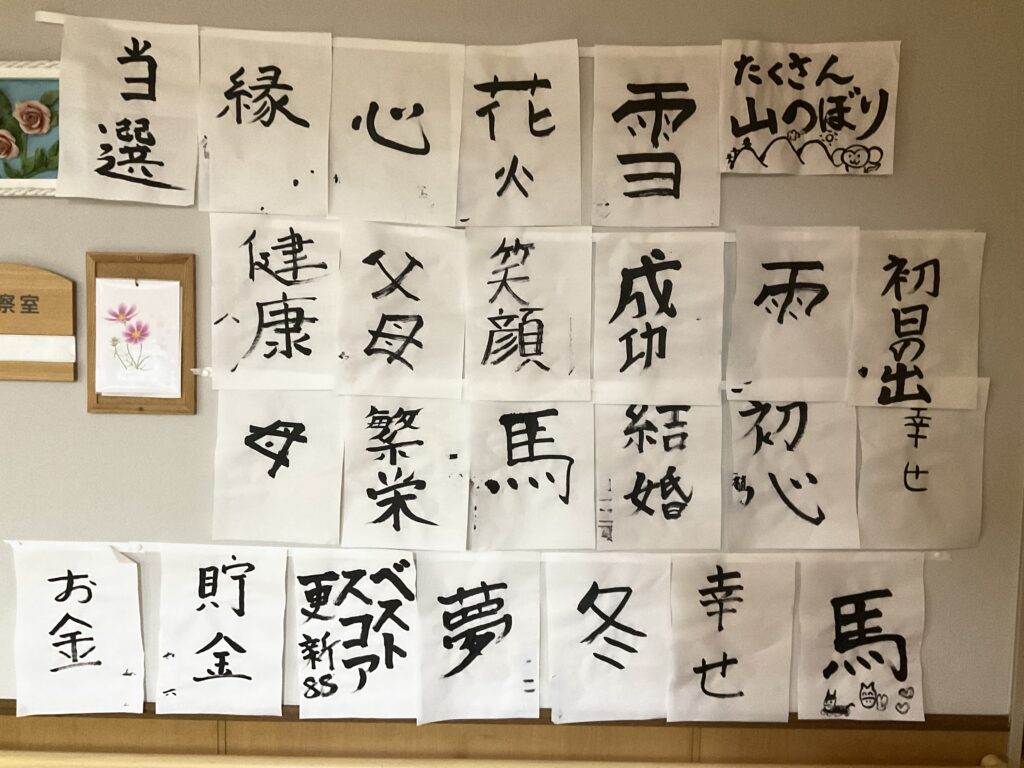 当選
縁
心
花火
雪
たくさん
山のぼり
健康
父母
笑顔
成功
雨
初日の出
察室
母
繁栄
馬
結婚
初心
幸せ
お金
貯金
ベスト
スコア
更新85
夢
冬
幸せ
馬